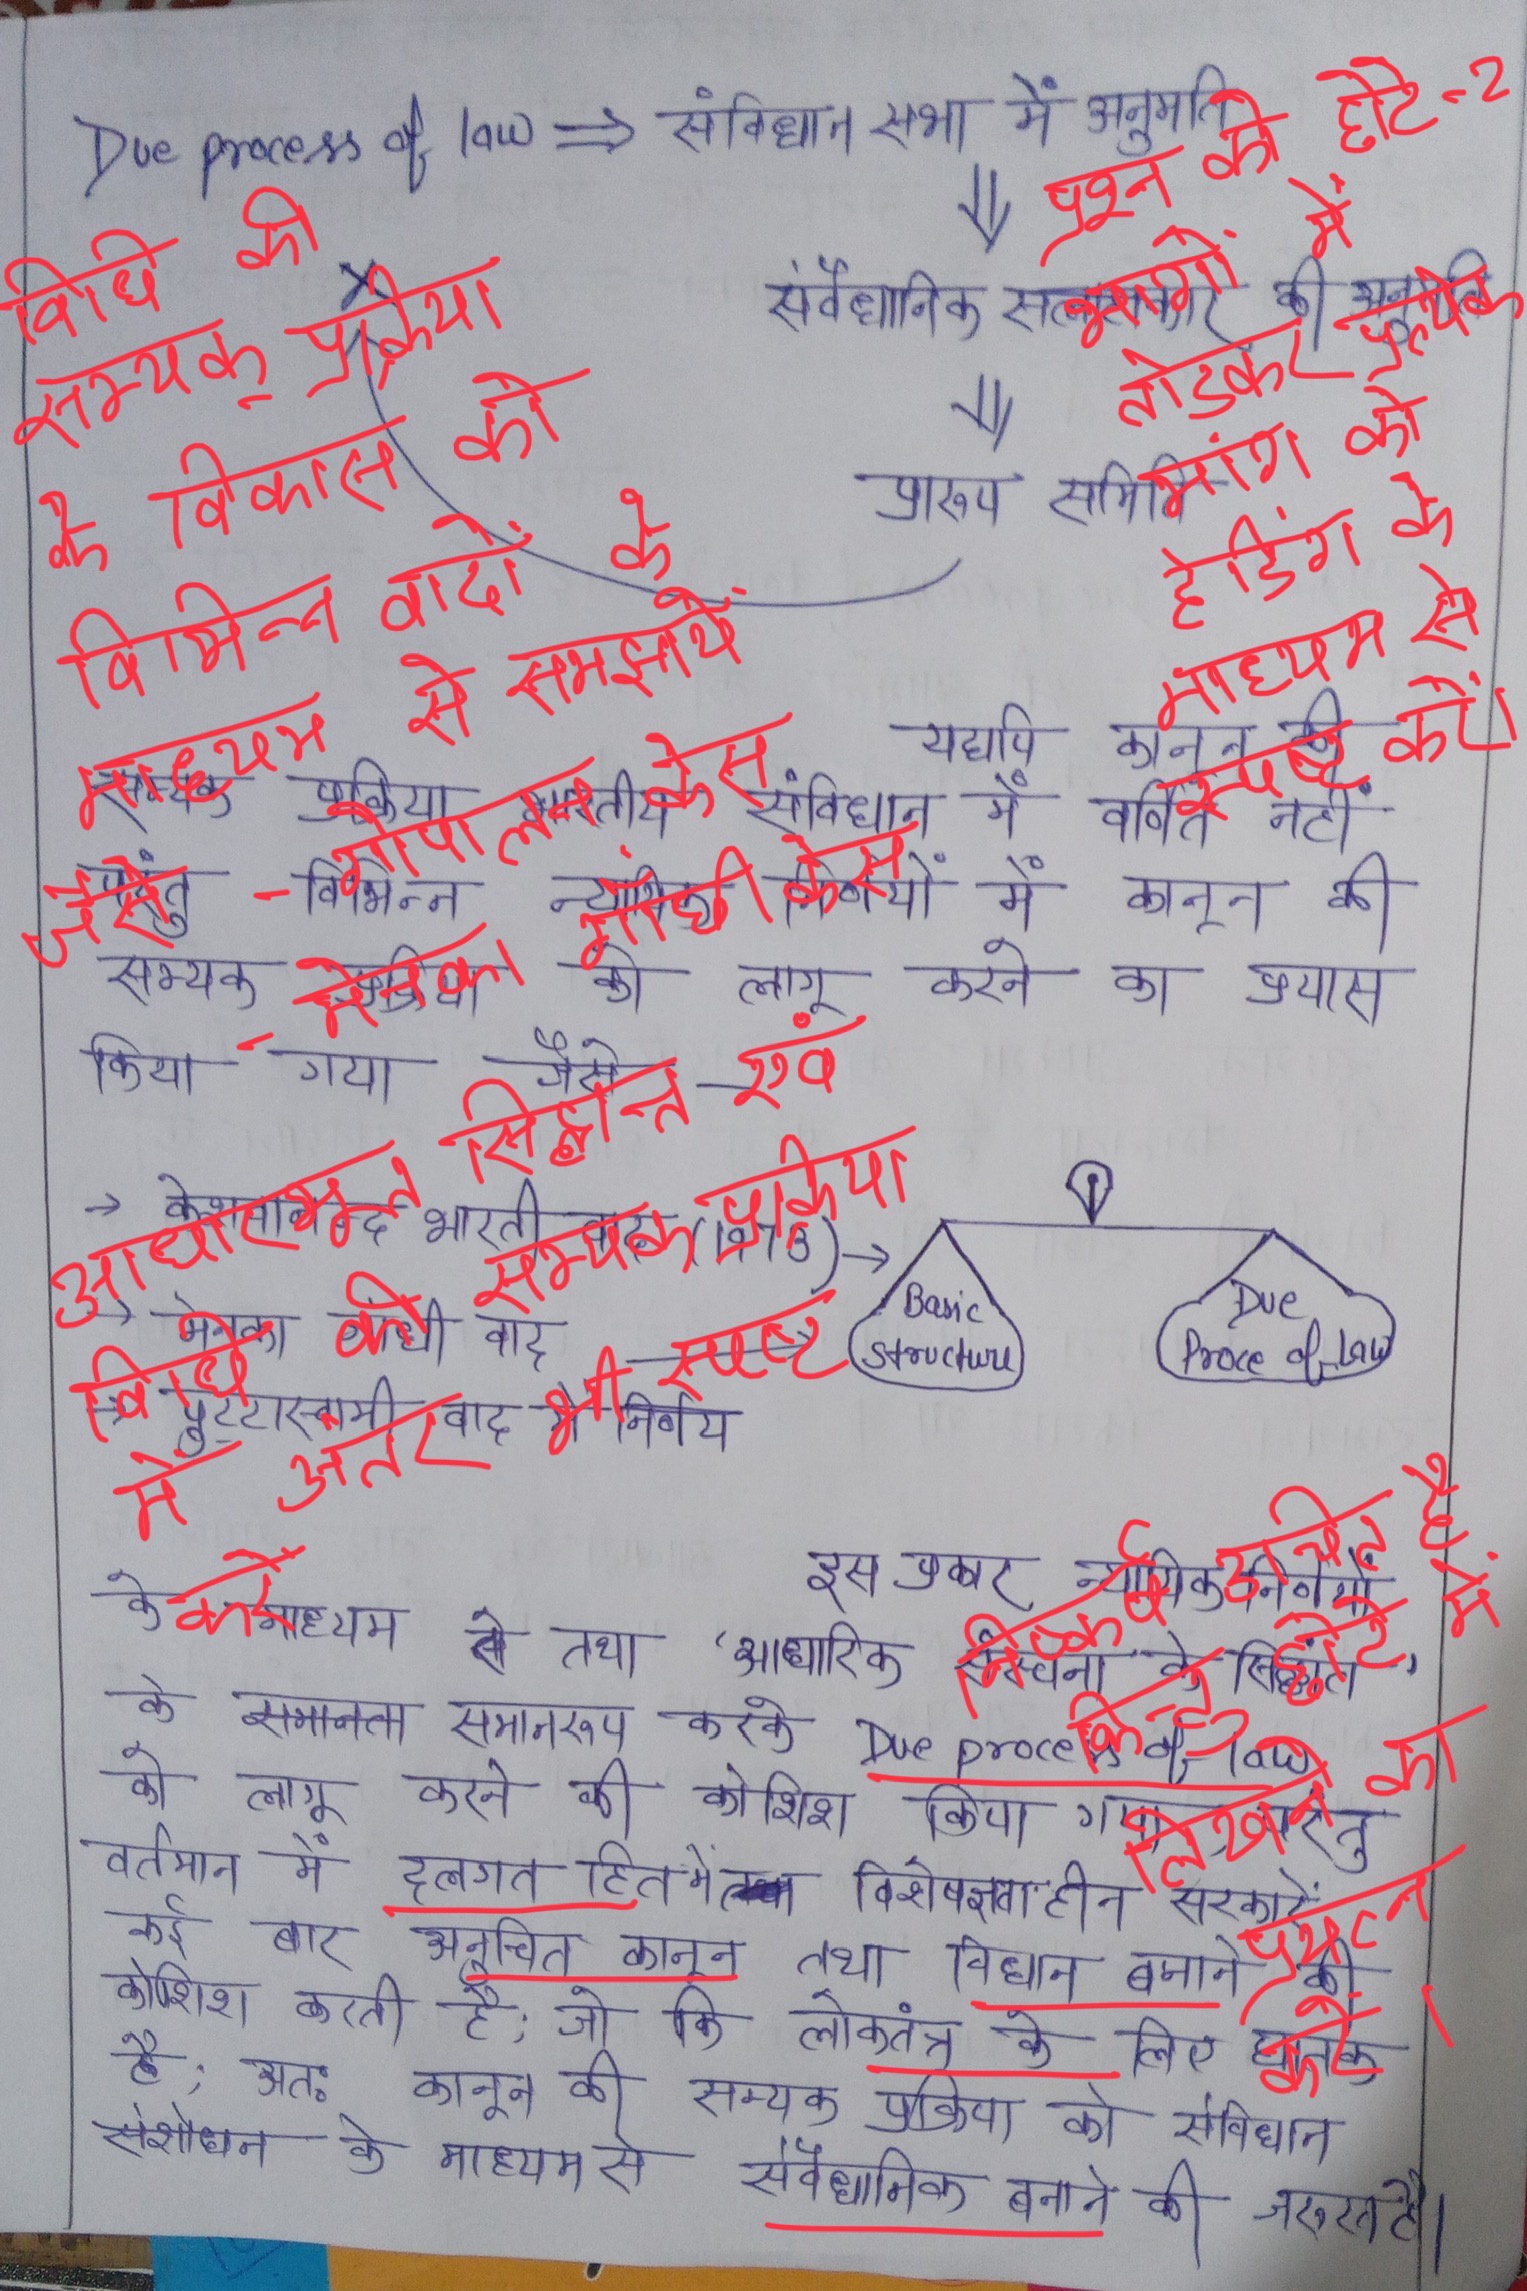 Due process of law ⇒ संविधान सभा में अनुमति
⇓
संवैधानिक सलाहकार की अनुमति
⇓
प्रारूप समिति
यद्यपि कानून की
सम्यक प्रक्रिया भारतीय संविधान में वर्णित नहीं
परंतु विभिन्न न्यायिक निर्णयों में कानून की
सम्यक प्रक्रिया को लागू करने का प्रयास
किया गया जैसे —
→ केशवानन्द भारती वाद (1973) →
→ मेनका गांधी वाद →
→ पुट्टास्वामी वाद में निर्णय
Basic
structure
Due
Proce of law
इस प्रकार न्यायिक निर्णयों
के माध्यम से तथा 'आधारिक संरचना के सिद्धांत'
के समानता समानरूप करके Due process of law
को लागू करने की कोशिश किया गया, परंतु
वर्तमान में दलगत हित में विशेषज्ञता हीन सरकारें
कई बार अनुचित कानून तथा विधान बनाने की
कोशिश करती है; जो कि लोकतंत्र के लिए घातक
है; अतः कानून की सम्यक प्रक्रिया को संविधान
संशोधन के माध्यम से संवैधानिक बनाने की जरूरत है।
प्रश्न को छोटे-2
भागों में
तोडकर प्रत्येक
मांग को
हेडिंग के
माध्यम से
स्पष्ट करें।
विधि की
सम्यक् प्रक्रिया
के विकास को
विभिन्न वादों के
माध्यम से समझायें
जैसे - गोपालन केस
- मेनका गांधी केस
आधारभूत सिद्धान्त एवं
विधि की सम्यक प्रक्रिया
में अंतर भी स्पष्ट
करें
निष्कर्ष उचित है
किन्तु छोटे में
लिखने का
प्रयत्न
करें।